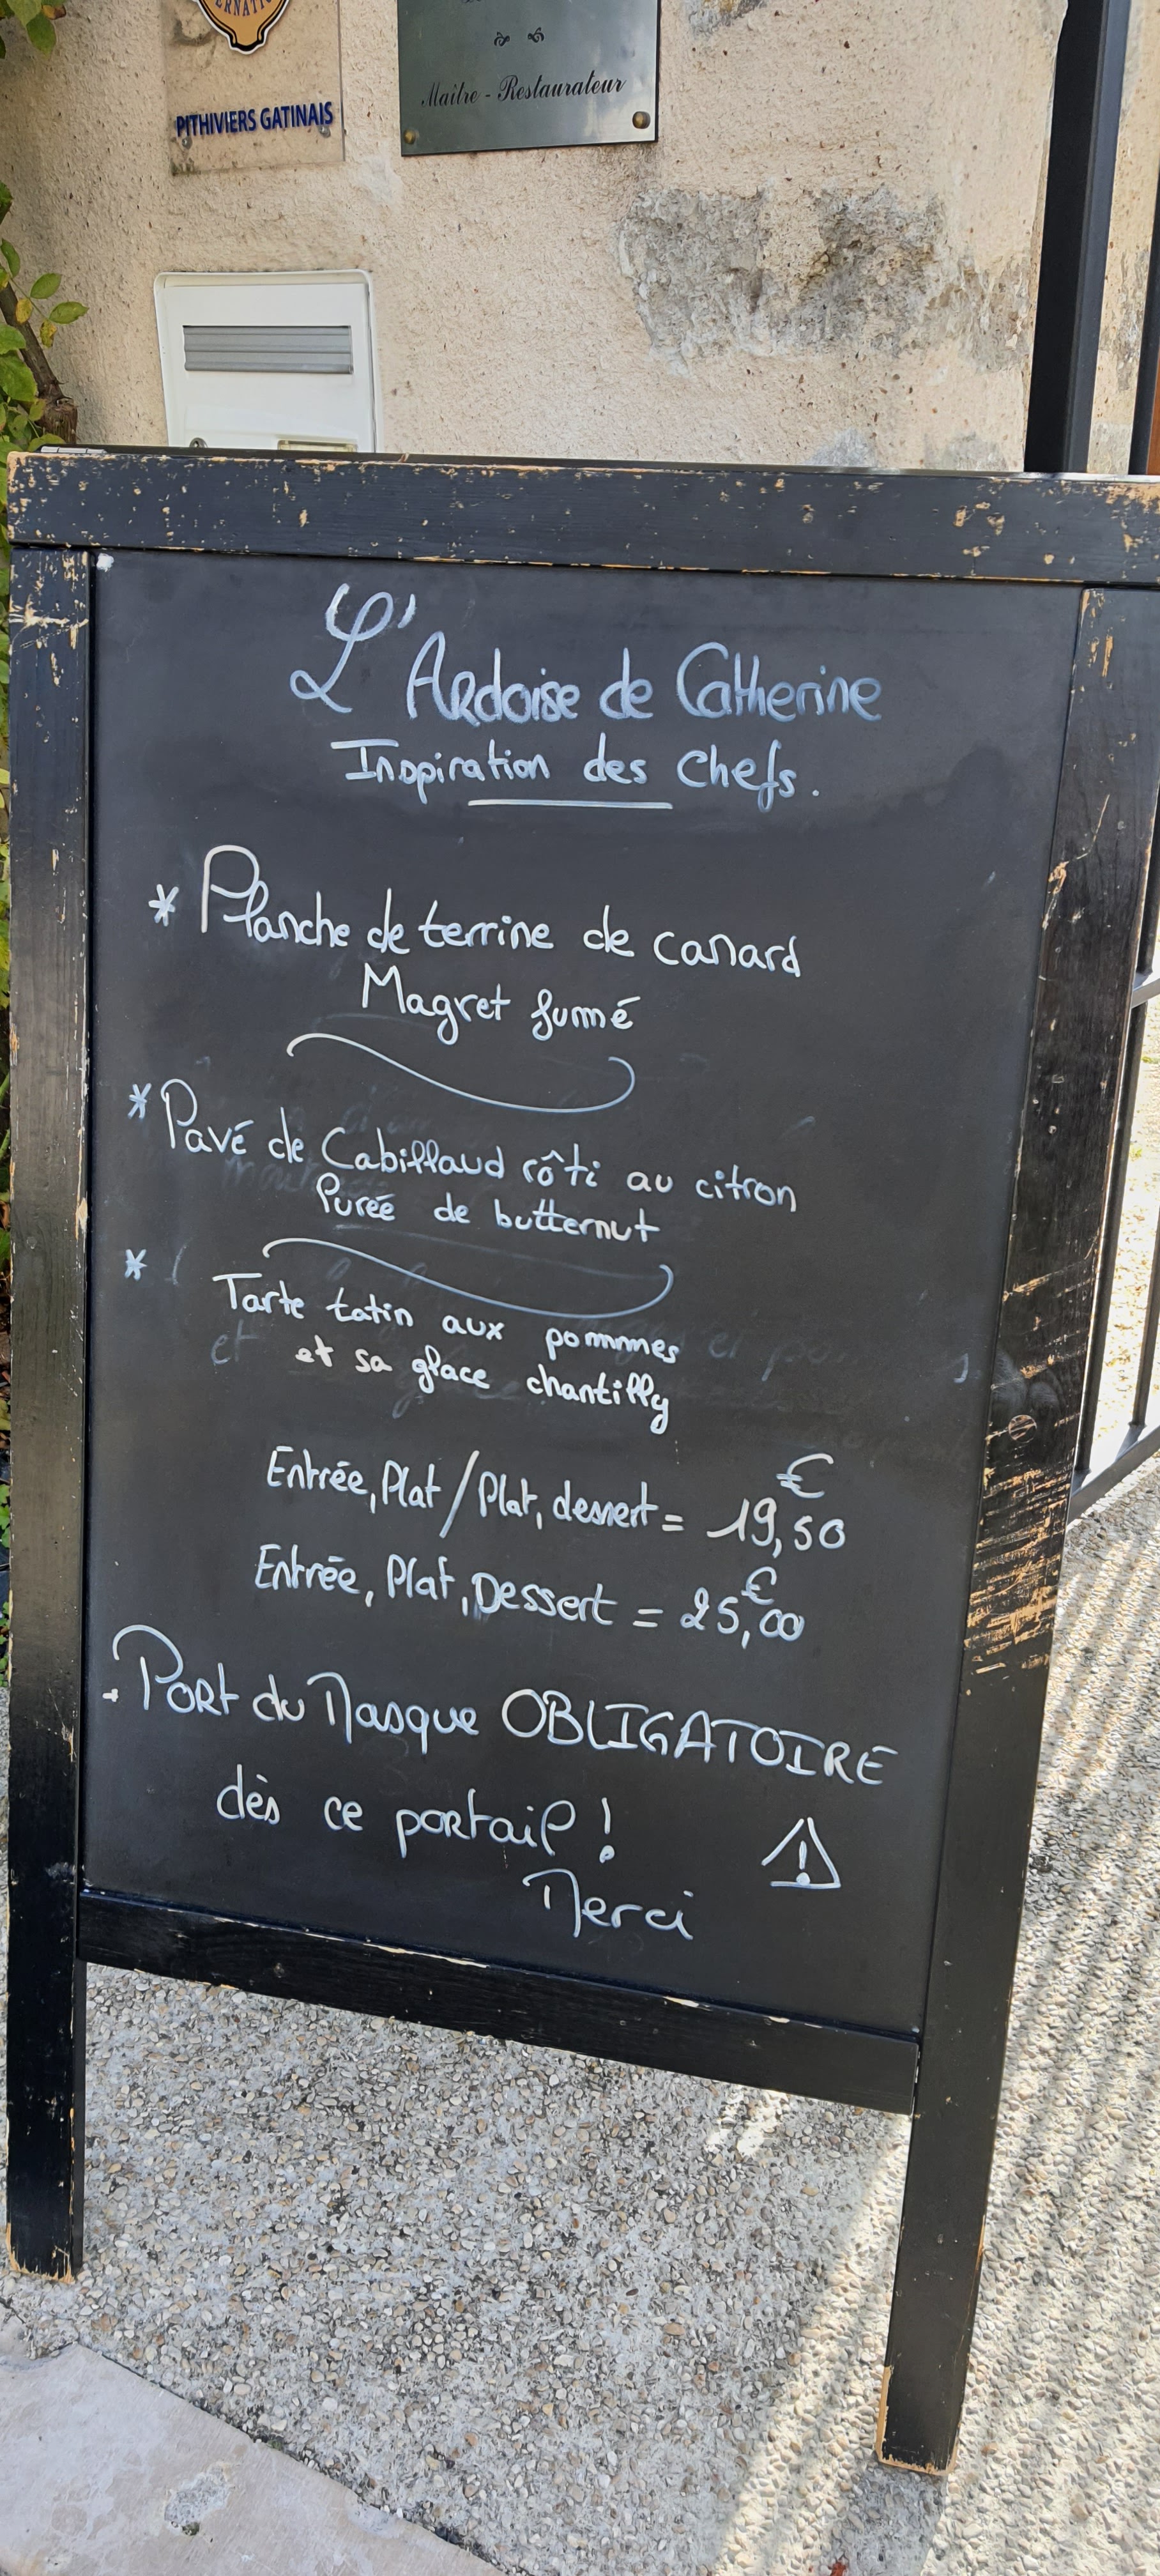 ERNATIO
PITHIVIERS GATINAIS
Maître - Restaurateur
L'Ardoise de Catherine
Inspiration des Chefs.
* Planche de terrine de canard
Magret fumé
* Pavé de Cabillaud rôti au citron
Purée de butternut
*
Tarte tatin aux pommes
et et sa glace chantilly
Entrée, Plat / Plat, dessert = 19,50 €
Entrée, Plat, Dessert = 25,00 €
Port du Masque OBLIGATOIRE
dès ce portail !
Merci